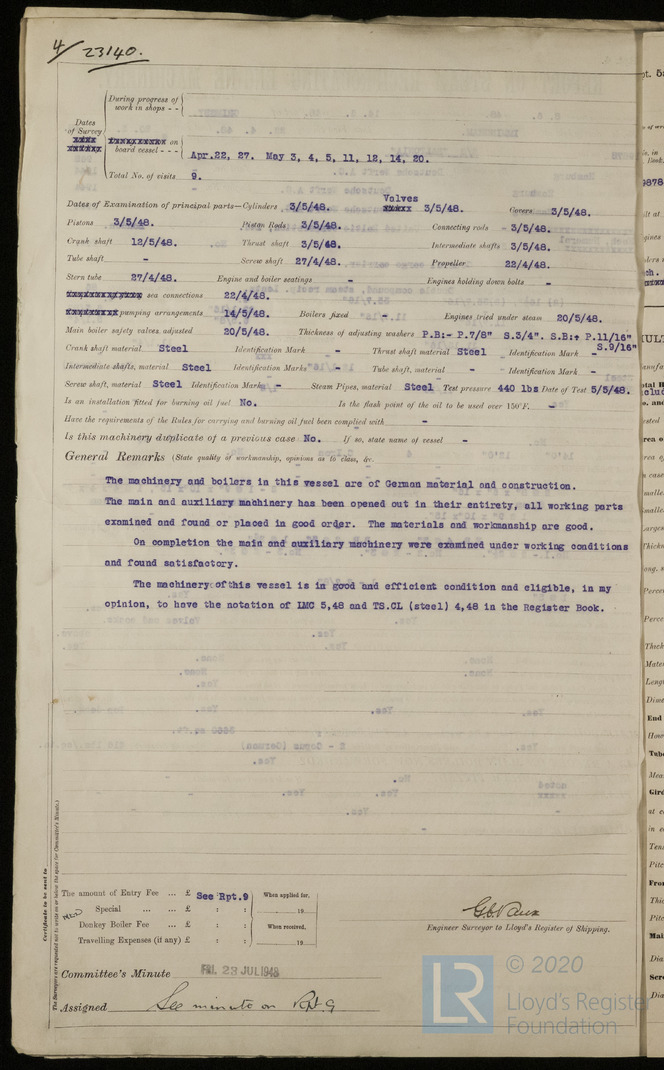 4/ 23140.
During progress of
work in shops - -
Dates
of Survey
on
board vessel - - -
Apr.22, 27. May 3, 4, 5, 11, 12, 14, 20.
Total No. of visits 9.
Dates of Examination of principal parts—Cylinders 3/5/48. Valves 3/5/48. Covers 3/5/48.
Pistons 3/5/48. Piston Rods 3/5/48. Connecting rods - 3/5/48.
Crank shaft 12/5/48. Thrust shaft 3/5/48. Intermediate shafts 3/5/48.
Tube shaft - Screw shaft 27/4/48. Propeller 22/4/48.
Stern tube 27/4/48. Engine and boiler seatings - Engines holding down bolts -
sea connections 22/4/48.
pumping arrangements 14/5/48. Boilers fixed - Engines tried under steam 20/5/48.
Main boiler safety valves, adjusted 20/5/48. Thickness of adjusting washers P.B:- P.7/8" S.3/4". S.B:+ P.11/16"
S.9/16"
Crank shaft material Steel Identification Mark - Thrust shaft material Steel Identification Mark -
Intermediate shafts, material Steel Identification Marks - Tube shaft, material - Identification Mark -
Screw shaft, material Steel Identification Mark - Steam Pipes, material Steel Test pressure 440 lbs Date of Test 5/5/48.
Is an installation fitted for burning oil fuel No. Is the flash point of the oil to be used over 150°F. -
Have the requirements of the Rules for carrying and burning oil fuel been complied with -
Is this machinery duplicate of a previous case No. If so, state name of vessel -
General Remarks (State quality of workmanship, opinions as to class, &c.
The machinery and boilers in this vessel are of German material and construction.
The main and auxiliary machinery has been opened out in their entirety, all working parts
examined and found or placed in good order. The materials and workmanship are good.
On completion the main and auxiliary machinery were examined under working conditions
and found satisfactory.
The machinery of this vessel is in good and efficient condition and eligible, in my
opinion, to have the notation of LMC 5,48 and TS.CL (steel) 4,48 in the Register Book.
Certificate to be sent to
The Surveyors are requested not to write on or below the space for Committee's Minute.
The amount of Entry Fee ... £ See Rpt.9
Special ... ... £ : :
Donkey Boiler Fee ... £ : :
Travelling Expenses (if any) £ : :
When applied for,
19
When received,
19
Engineer Surveyor to Lloyd's Register of Shipping.
Committee's Minute FRI. 23 JUL 1948
Assigned See minute on Rpt 9
LR © 2020
Lloyd's Register
Foundation